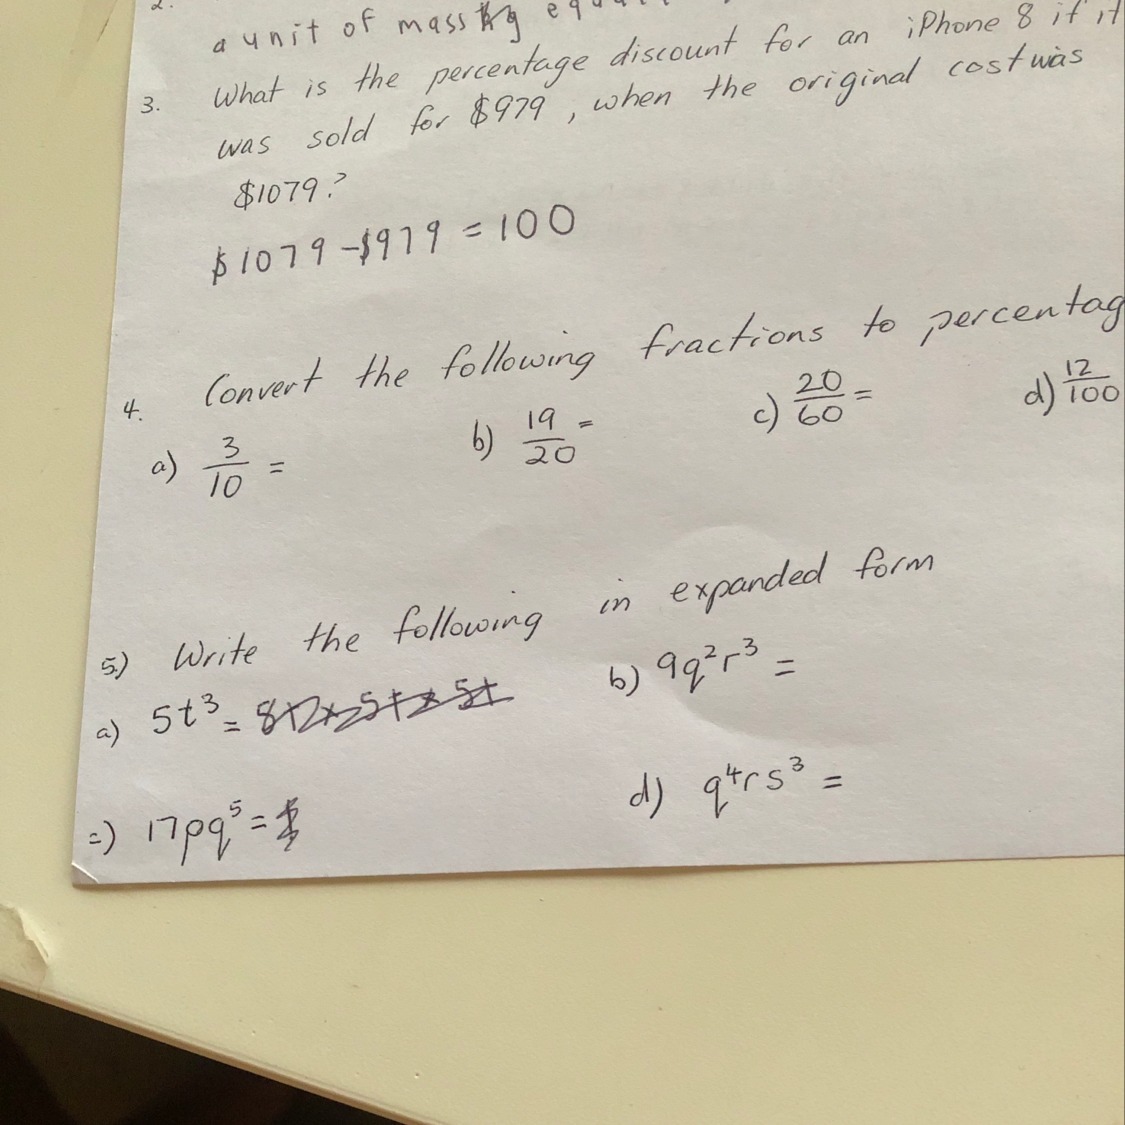 2.
a unit of mass
3. What is the percentage discount for an iPhone 8 if it
was sold for $979, when the original cost was
$1079?
$1079 - $979 = 100
4. Convert the following fractions to percentag
a) 3/10 = b) 19/20 = c) 20/60 = d) 12/100
5.) Write the following in expanded form
a) 5t³ = b) 9q²r³ =
c) 17pq⁵ = d) q⁴rs³ =